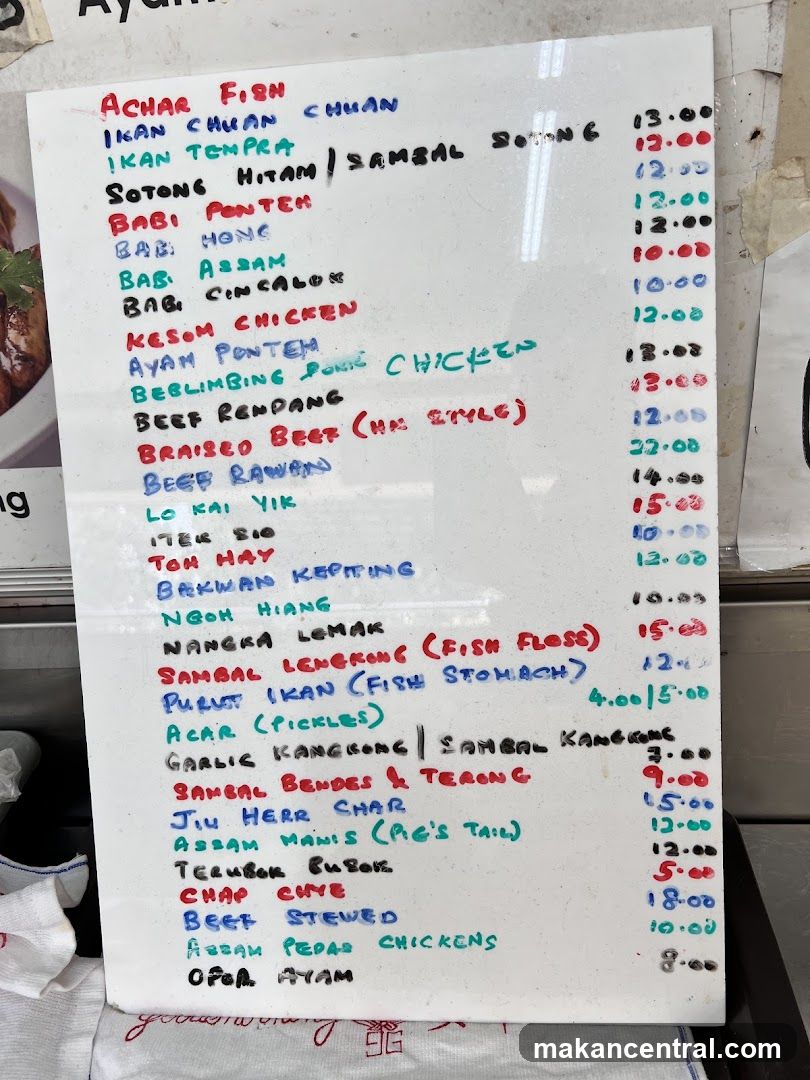 ACHAR FISH
IKAN CHUAN CHUAN
IKAN TEMPRA
SOTONG HITAM / SAMBAL SOTONG 13.00
BABI PONTEH 12.00
BABI HONG 12.00
BABI ASSAM 12.00
BABI CINCALOK 12.00
KESOM CHICKEN 10.00
AYAM PONTEH 10.00
BEBLIMBING CHICKEN 12.00
BEEF RENDANG 13.00
BRAISED BEEF (HK STYLE) 13.00
BEEF RAWAN 12.00
LO KAI YIK 22.00
ITEK SIO 14.00
TOH HAY 15.00
BAKWAN KEPITING 10.00
NGOH HIANG 12.00
NANGKA LEMAK 10.00
SAMBAL LENGKONG (FISH FLOSS) 15.00
PURUT IKAN (FISH STOMACH) 12.
ACAR (PICKLES) 4.00/5.00
GARLIC KANGKONG / SAMBAL KANGKONG 7.00
SAMBAL BENDES & TERONG 9.00
JIU HERR CHAR 15.00
ASSAM MANIS (PIG'S TAIL) 12.00
TERUBOK BUSOK 12.00
CHAP CHYE 5.00
BEEF STEWED 18.00
ASSAM PEDAS CHICKENS 10.00
OPOR AYAM 8.00
makancentral.com